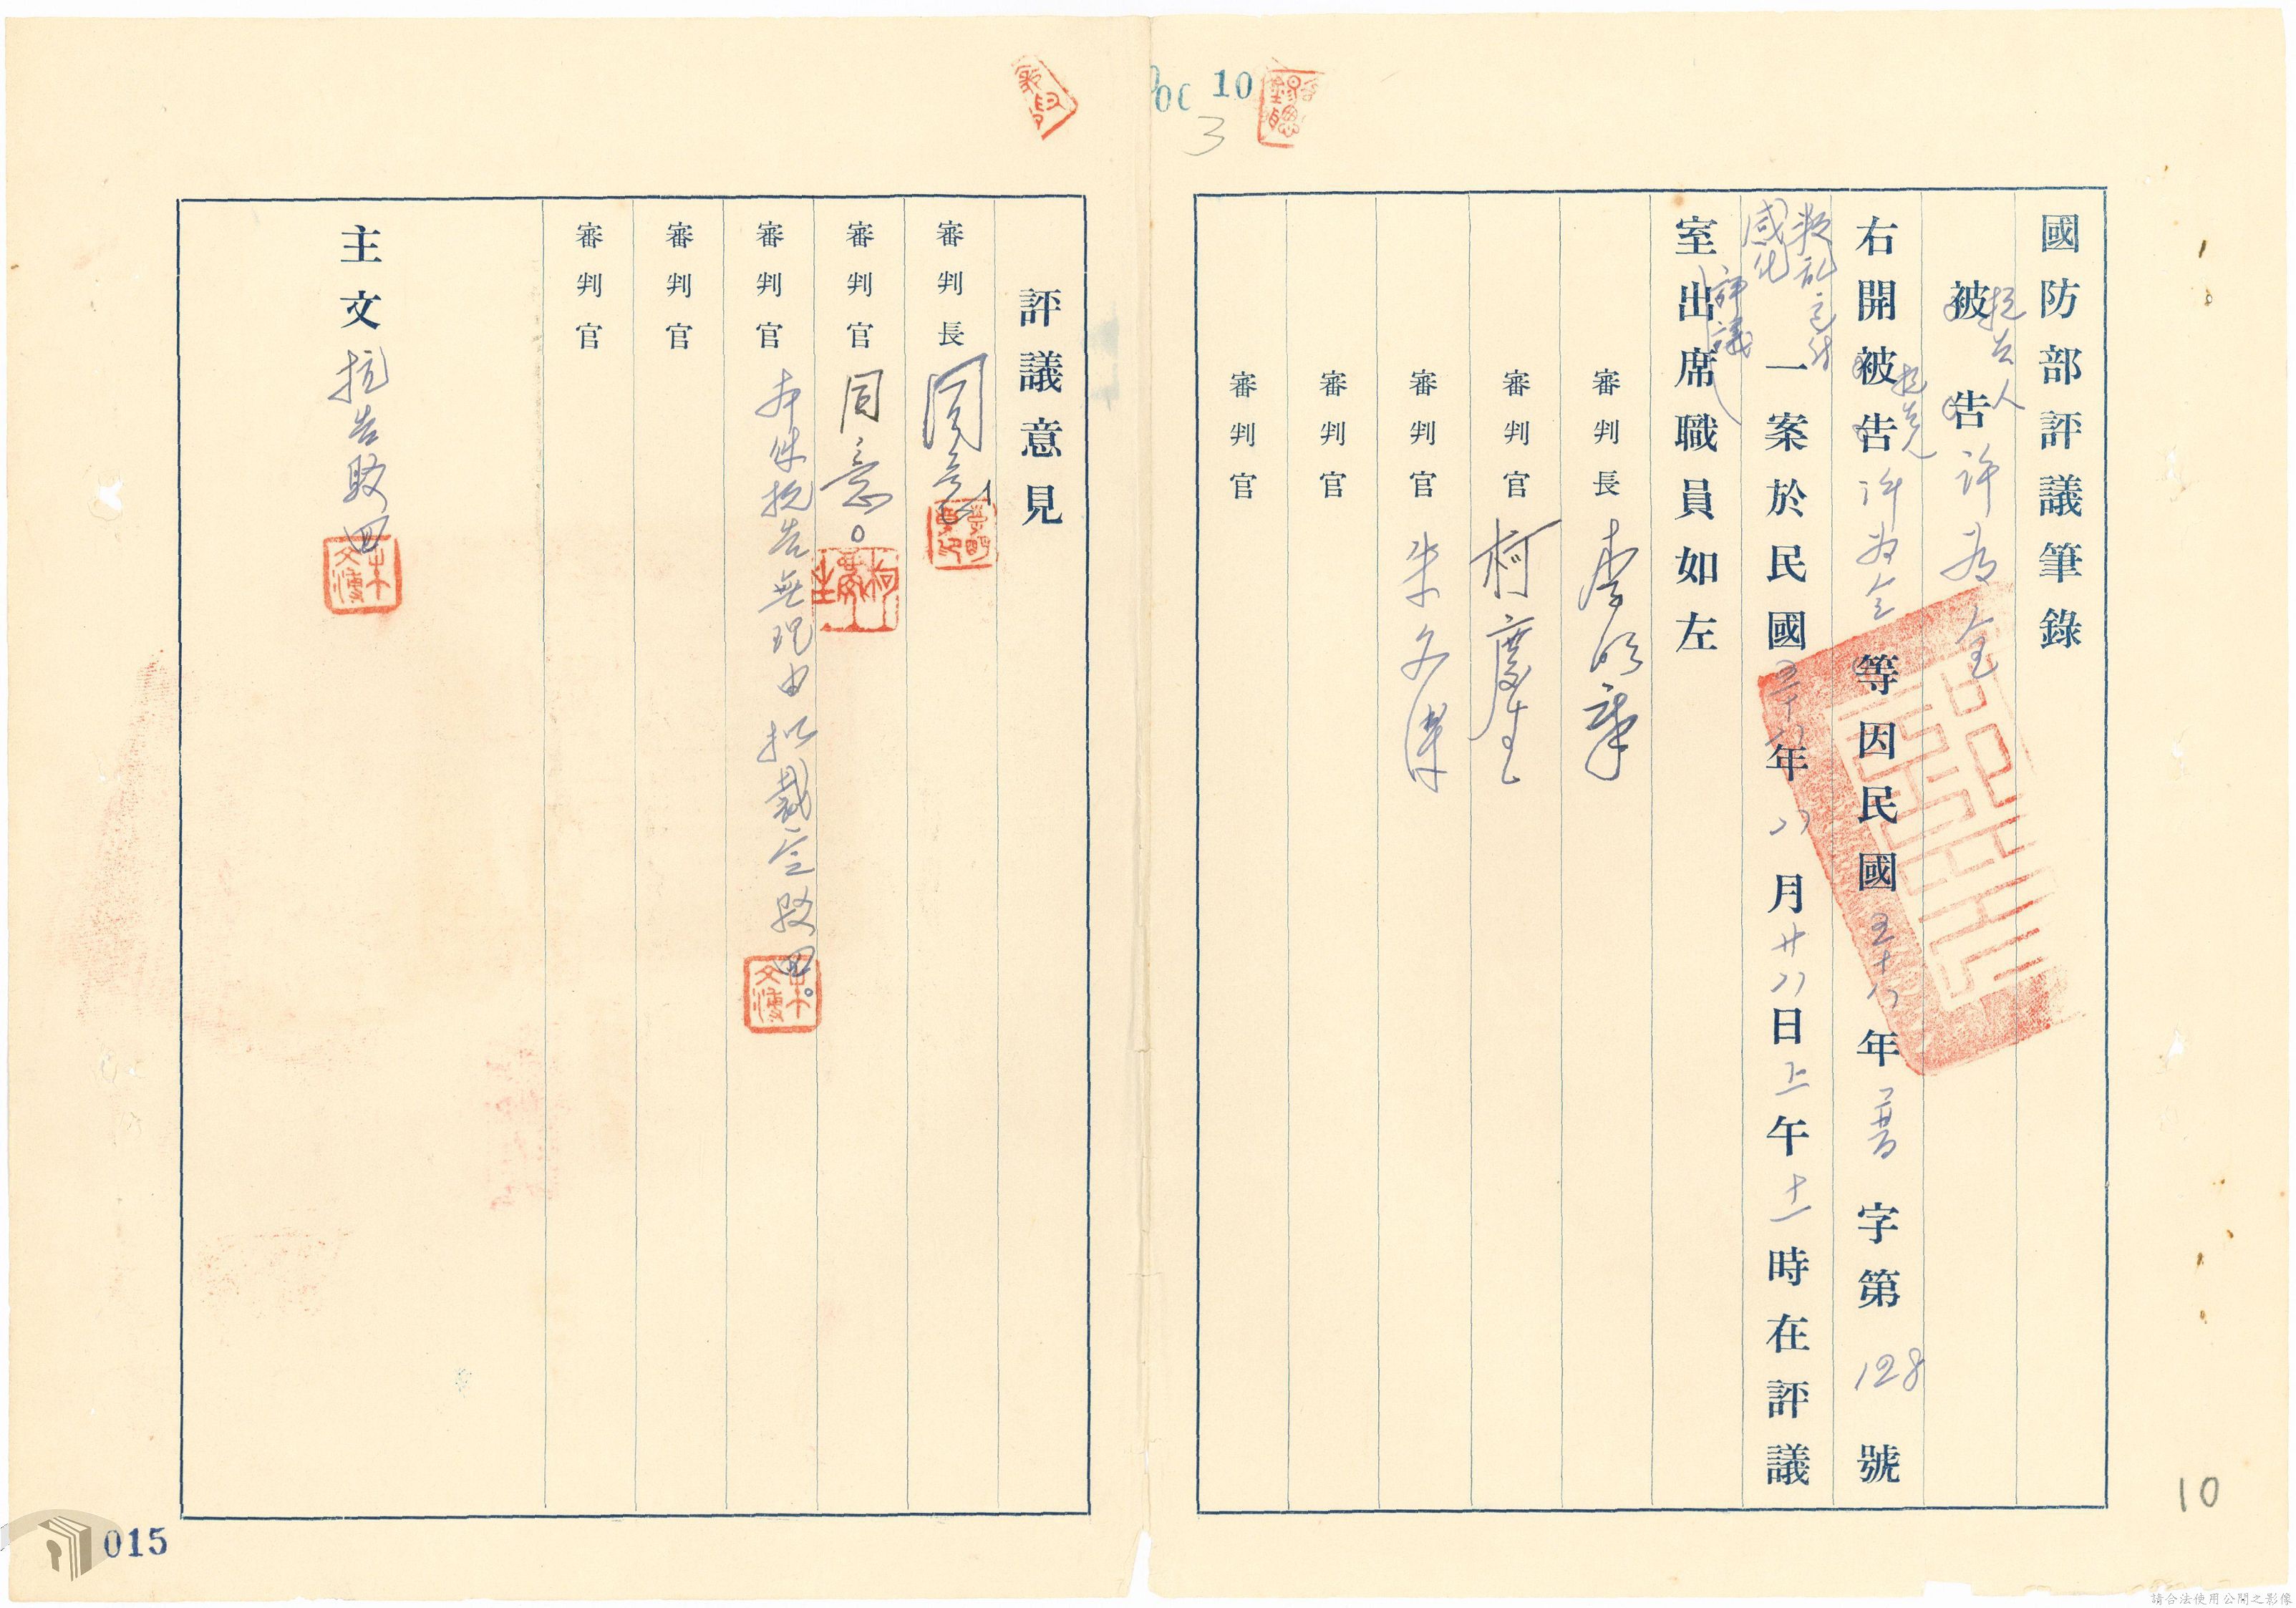 國防部評議筆錄
抗告人
被告 許為全
右開被告抗告許為全等因民國五十八年 普 字第 128 號
叛乱 感化
一案於民國五十八年 八 月廿八日上午十一時在評議
評議
室出席職員如左
審判長 李明章
審判官 柯慶生
審判官 朱文溥
審判官
審判官
10
3
10
評議意見
審判長 同意
審判官 同意。
審判官 本件抗告無理由 擬裁定駁回。
審判官
審判官
主文 抗告駁回
015
請合法使用公開之影像